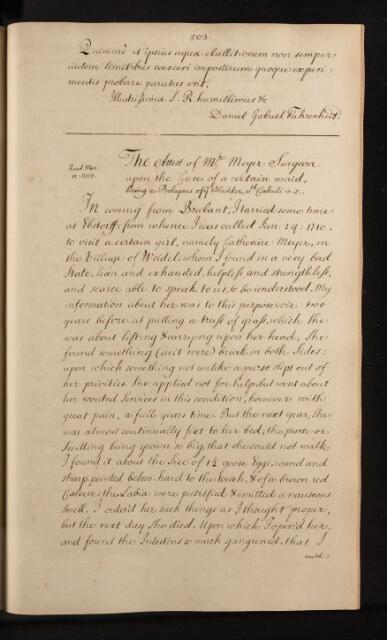 503.
Quinimò et ipsius aquæ ebullitionem non semper
iisdem limitibus coerceri imposterum quoque experi-
mentis probare paratus ero.
Illustrissimæ S. R. humillimus &c
Daniel Gabriel Fahrenheit.
The Attest of Mr. Meyer Surgeon
upon the Case of a certain maid;
being a Prolapsus of ye Bladder, wth Calculi in it.
Read Mar.
In coming from Brabant, I tarried some time
at Ebstorff; from whence I was called Jan. 29. 1710.
to visit a certain girl, namely Catherine Meyer, in
the Village of Weidel: whom I found in a very bad
state, lean and exhausted, helpless and strengthless,
and scarce able to speak to us, to be understood. My
information about her was to this purpose viz. two
years before at putting a truss of grass, which she
was about lifting & carrying upon her head, She
found something (as it were) break in both Sides:
upon which something not unlike a purse slipt out of
her privities She applied not for help, but went about
her wonted Services in this condition, however with
great pain, a full years time. But the next year, she
was almost continually fixt to her bed; the purse or
Swelling being grown so big, that she could not walk
I found it about the Size of 1½ goose Eggs, round and
sharp pointed below, hard to the touch, & of a brown red
Colour: the Labia were putrified & emitted a nauseous
smell. I order'd her such things as I thought proper,
but the next day She died. Upon which I open'd her,
and found the Intestins so much gangrened, that I
could